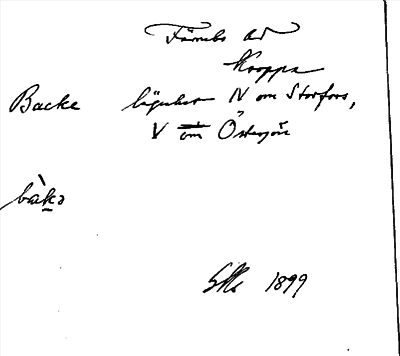 Färnebo hd
Kroppa
Backe lägenher N om Storfors,
V om Östersjön
bàkə
1899